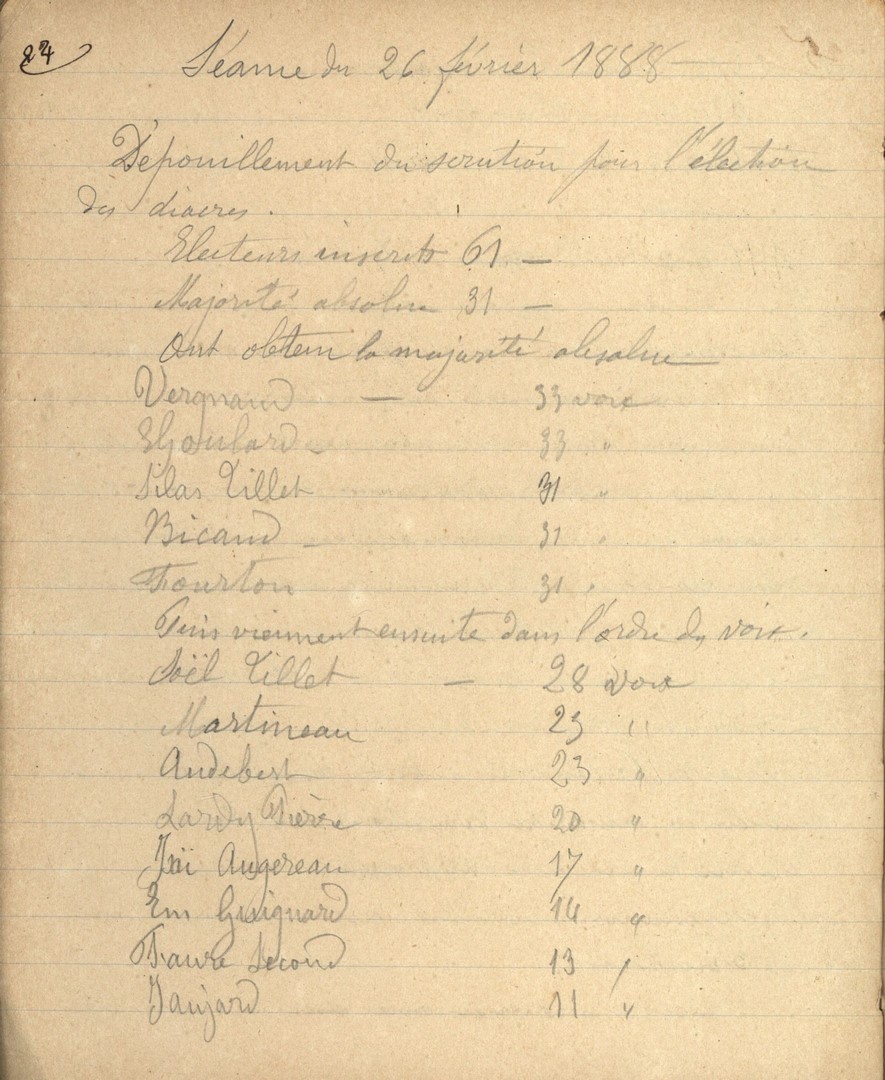 24
Séance du 26 février 1888
Dépouillement du scrutin pour l'élection
des diacres.
Electeurs inscrits 61 —
Majorité absolue 31 —
Ont obtenu la majorité absolue
Vergnaud — 33 voix
Goulard 33 "
Silas Tillet 31 "
Bicaud 31 "
Fourton 31 "
Puis viennent ensuite dans l'ordre des voix.
Noël Tillet — 28 voix
Martineau 23 "
Audebert 23 "
Lardy Pierre 20 "
Augereau 17 "
Em Guignard 14 "
Faure Second 13 "
Jaujard 11 "